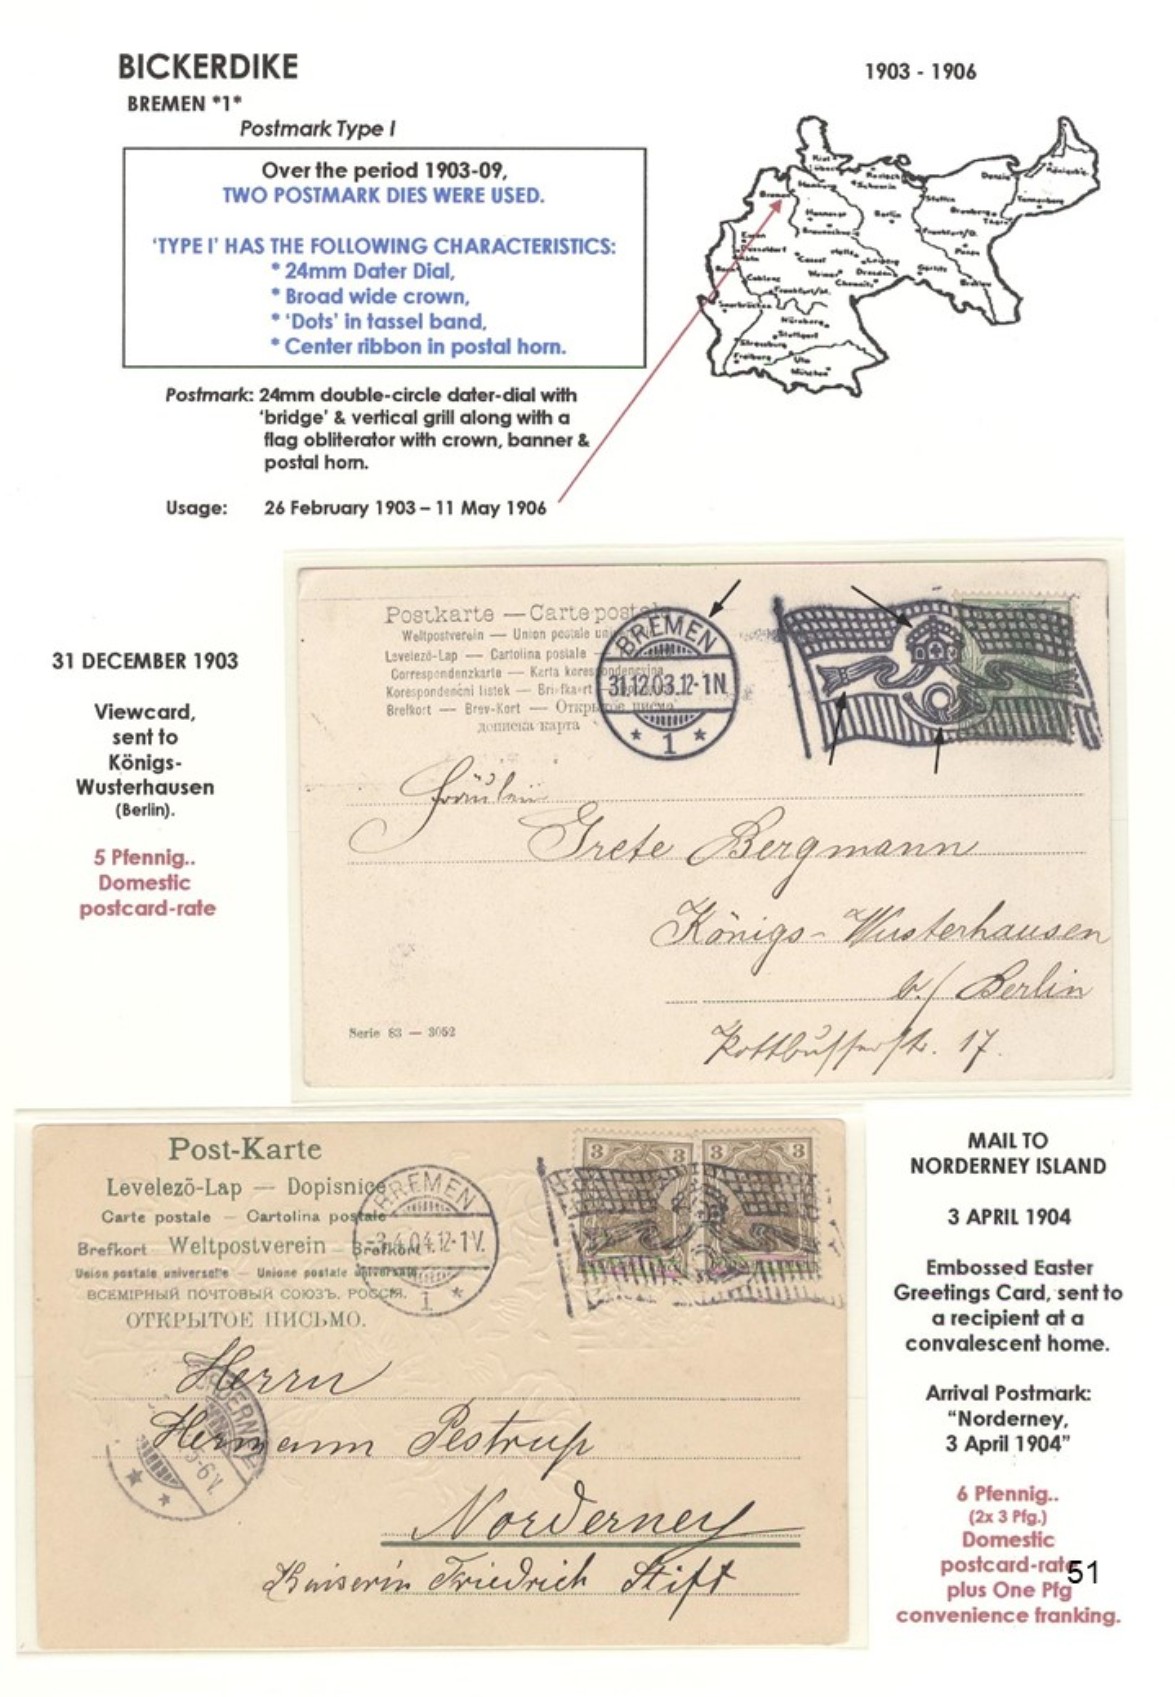 BICKERDIKE
1903 - 1906
BREMEN *1*
Postmark Type I
Over the period 1903-09,
TWO POSTMARK DIES WERE USED.
'TYPE I' HAS THE FOLLOWING CHARACTERISTICS:
* 24mm Dater Dial,
* Broad wide crown,
* 'Dots' in tassel band,
* Center ribbon in postal horn.
Postmark: 24mm double-circle dater-dial with
'bridge' & vertical grill along with a
flag obliterator with crown, banner &
postal horn.
Usage: 26 February 1903 – 11 May 1906
Kiel
Lübeck
Rostock
Schwerin
Hamburg
Bremen
Danzig
Stettin
Bromberg
Thorn
Tannenberg
Hannover
Berlin
Braunschweig
Frankfurt/O.
Posen
Essen
Düsseldorf
Köln
Cassel
Halle
Leipzig
Weimar
Dresden
Chemnitz
Görlitz
Breslau
Bonn
Coblenz
Frankfurt/M.
Saarbrücken
Nürnberg
Stuttgart
Strassburg
Freiburg
Ulm
München
31 DECEMBER 1903
Viewcard,
sent to
Königs-
Wusterhausen
(Berlin).
5 Pfennig..
Domestic
postcard-rate
Postkarte — Carte postale
Weltpostverein — Union postale
Levelező-Lap — Cartolina postale —
Correspondenzkarte — Karta korespondencyjna
Korespondenční lístek — Briefkaart —
Brefkort — Brev-Kort — Открытое письмо
дописна карта
BREMEN
31.12.03.12-1N
* 1 *
Fräulein
Grete Bergmann
Königs-Wusterhausen
b./ Berlin
Kottbusserstr. 17.
Serie 83 — 3052
Post-Karte
Levelező-Lap — Dopisnice
Carte postale — Cartolina postale
Brefkort Weltpostverein — Brefkort
Union postale universelle — Unione postale universale
ВСЕМІРНЫЙ ПОЧТОВЫЙ СОЮЗЪ. РОССІЯ.
ОТКРЫТОЕ ПИСЬМО.
BREMEN
-3.4.04.12-1V.
1 *
3 3 3 3
Herrn
Hermann Pestrup
Norderney
Kaiserin Friedrich Stift
5-6V.
MAIL TO
NORDERNEY ISLAND
3 APRIL 1904
Embossed Easter
Greetings Card, sent to
a recipient at a
convalescent home.
Arrival Postmark:
“Norderney,
3 April 1904”
6 Pfennig..
(2x 3 Pfg.)
Domestic
postcard-rate
plus One Pfg
convenience franking.
51